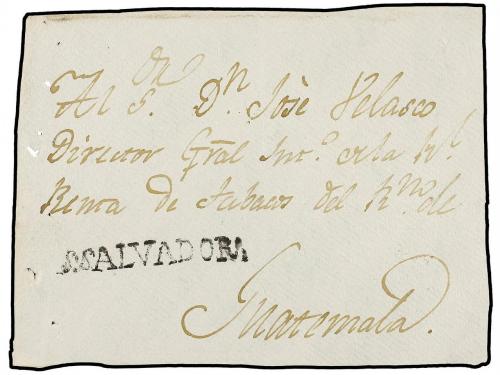 Al Sōr. Dn. José Velasco
Director Gral Int.º de la Rl.
Renta de Tabacos del Rno. de
SSALVADORA
Guatemala.